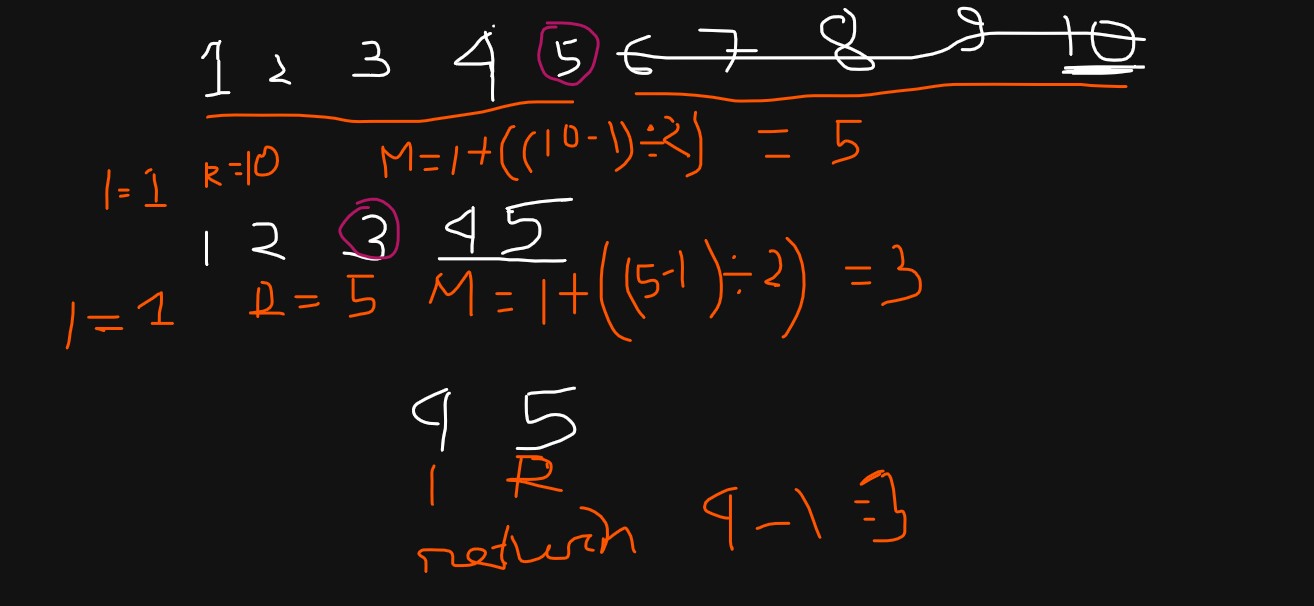 1 2 3 4 5 6 7 8 9 10
l=1 R=10 M=1+((10-1)÷2) = 5
1 2 3 4 5
l=1 R=5 M=1+((5-1)÷2) =3
4 5
l R
return 4-1=3